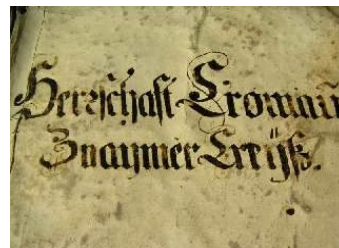 Herrschafft Cromau
Znaymer Creÿß.